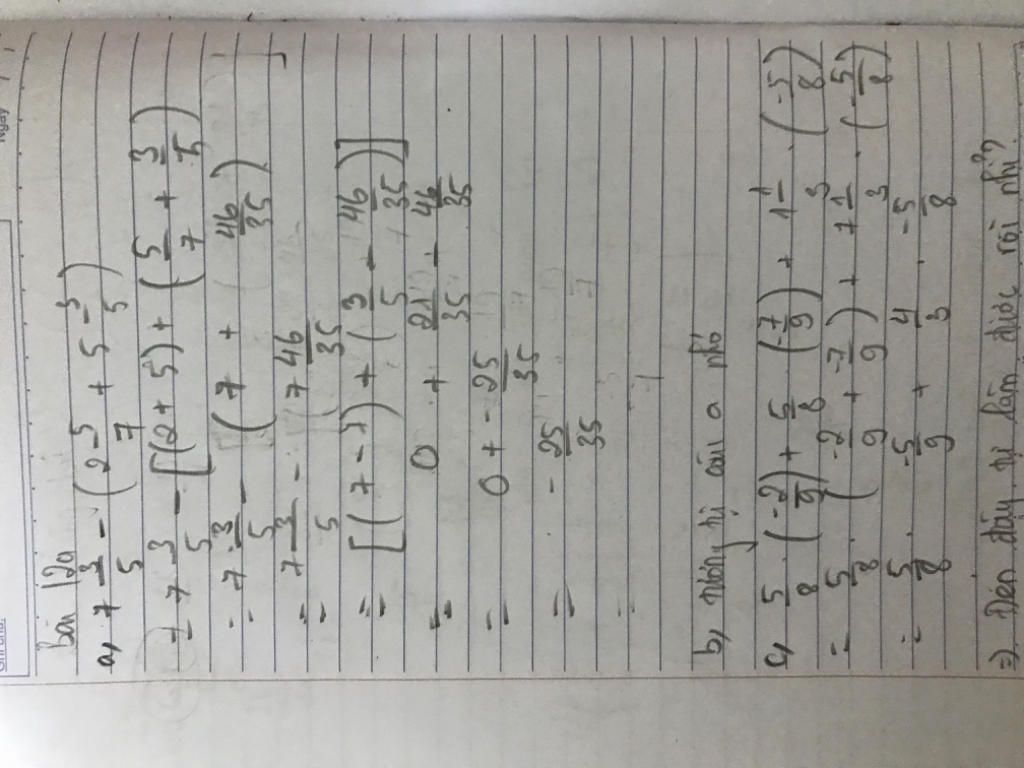 Bài 12a
a, 7 3/5 - (2 5/7 + 5 3/5)
= 7 3/5 - [(2 + 5) + (5/7 + 3/5)
= 7 3/5 - (7 + 46/35)
= 7 3/5 - 7 46/35
= [(7 - 7) + (3/5 - 46/35)]
= 0 + 21/35 - 46/35
= 0 + - 25/35
= - 25/35
b, tương tự câu a nhé
c, 5/8 . (-2/9) + 5/8 . (-7/9) + 1 1/3 . (-5/8)
= 5/8 . (-2/9 + -7/9) + 1 1/3 . (-5/8)
= 5/8 . -5/9 + 4/3 . -5/8
=> Đến đây tự làm được rồi nhỉ?